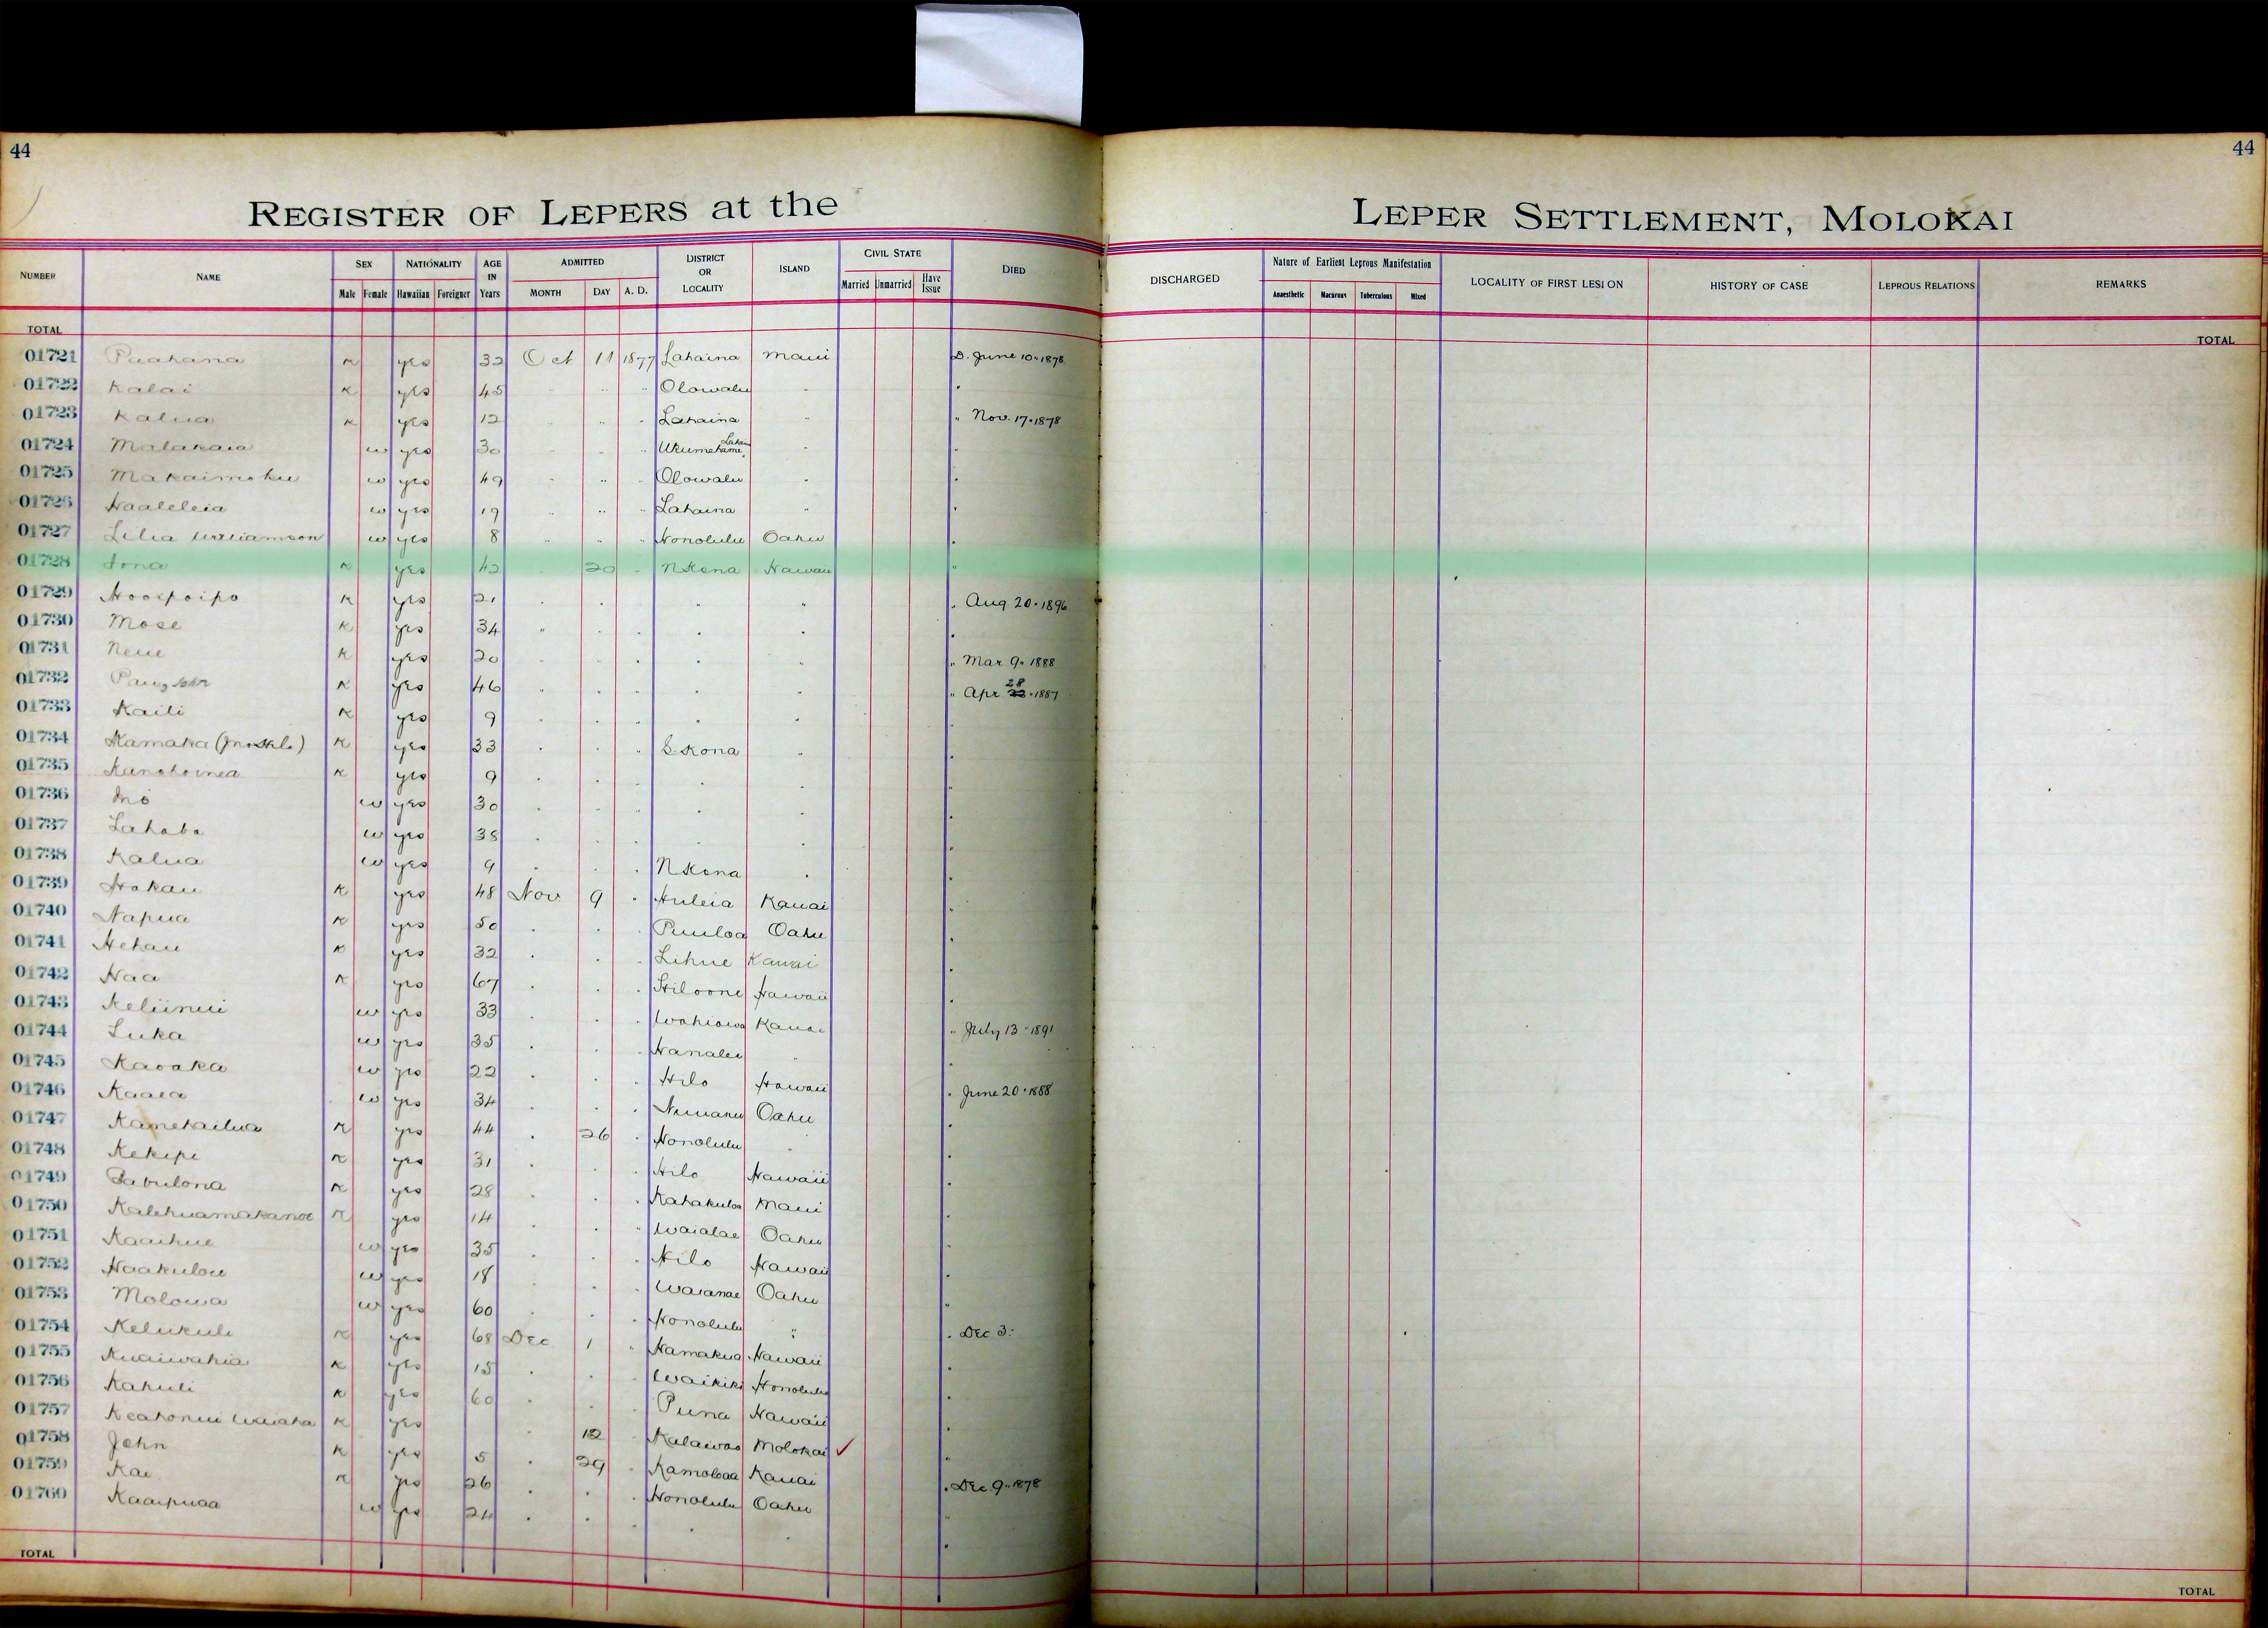 44
44
REGISTER OF LEPERS at the LEPER SETTLEMENT, MOLOKAI
NUMBER NAME SEX NATIONALITY AGE IN Years ADMITTED DISTRICT OR LOCALITY ISLAND CIVIL STATE DIED DISCHARGED Nature of Earliest Leprous Manifestation LOCALITY OF FIRST LESION HISTORY OF CASE LEPROUS RELATIONS REMARKS
Male Female Hawaiian Foreigner MONTH DAY A. D. Married Unmarried Have Issue Anaesthetic Macurous Tuberculous Mixed
TOTAL TOTAL
01721 Puahana K yes 32 Oct 11 1877 Lahaina Maui D. June 10 " 1878
01722 Kalai K yes 45 " " Olowalu " "
01723 Kalua K yes 12 " " " Lahaina " " Nov. 17 " 1878
01724 Malakaia w yes 30 " " " Ukumehame, " "
01725 Makaimoku w yes 49 " " " Olowalu " "
01726 Haaleleia w yes 19 " " " Lahaina " "
01727 Lilia Williamson w yes 8 " " " Honolulu Oahu "
01728 Iona K yes 42 " 20 " N Kona Hawaii "
01729 Hooipoipo K yes 21 " " " " " Aug. 20 " 1896
01730 Mose K yes 34 " " " " " "
01731 Neue K yes 20 " " " " " " Mar. 9 " 1888
01732 John K yes 46 " " " " " " Apr 28 " 1887
01733 Kaili K yes 9 " " " " " "
01734 Kamaka K yes 33 " " " S. Kona " "
01735 K yes 9 " " " " " "
01736 w yes 30 " " " " " "
01737 w yes 38 " " " " " "
01738 Kalua w yes 9 " " " N Kona " "
01739 Hokau K yes 48 Nov 9 " Huleia Kauai "
01740 Napua K yes 50 " " " Puuloa Oahu "
01741 Hehau K yes 32 " " " Lihue Kauai "
01742 Naa K yes 67 " " " Hiloone Hawaii "
01743 Keliinui w yes 33 " " " Wahiawa Kauai " July 13 " 1891
01744 Luka w yes 35 " " " Hanalei " "
01745 Kaoaka w yes 22 " " " Hilo Hawaii " June 20 " 1888
01746 Kaaea w yes 34 " " " Nuuanu Oahu "
01747 Kamehailua K yes 44 " 26 " Honolulu " "
01748 Kekipi K yes 31 " " " Hilo Hawaii "
01749 Zabulona K yes 28 " " " Kahakuloa Maui "
01750 Kalehuamakanoe K yes 14 " " " Waialae Oahu "
01751 Kaaihue w yes 35 " " " Hilo Hawaii "
01752 Haakulou w yes 18 " " " Waianae Oahu "
01753 Molowa w yes 60 " " " Honolulu " " Dec 3.
01754 K yes 68 Dec 1 " Hamakua Hawaii "
01755 Kuaiwahia K yes 15 " " Waikiki Honolulu "
01756 Kahuli K yes 60 " " Puna Hawaii "
01757 Keahonui Waiaha K yes " 12 Kalawao Molokai ✓ "
01758 John K yes 5 " 29 " Kamoloaa Kauai " Dec 9 " 1878
01759 Kai K yes 26 " " " Honolulu Oahu "
01760 Kaaipuaa w yes 24 " " " " " "
TOTAL TOTAL